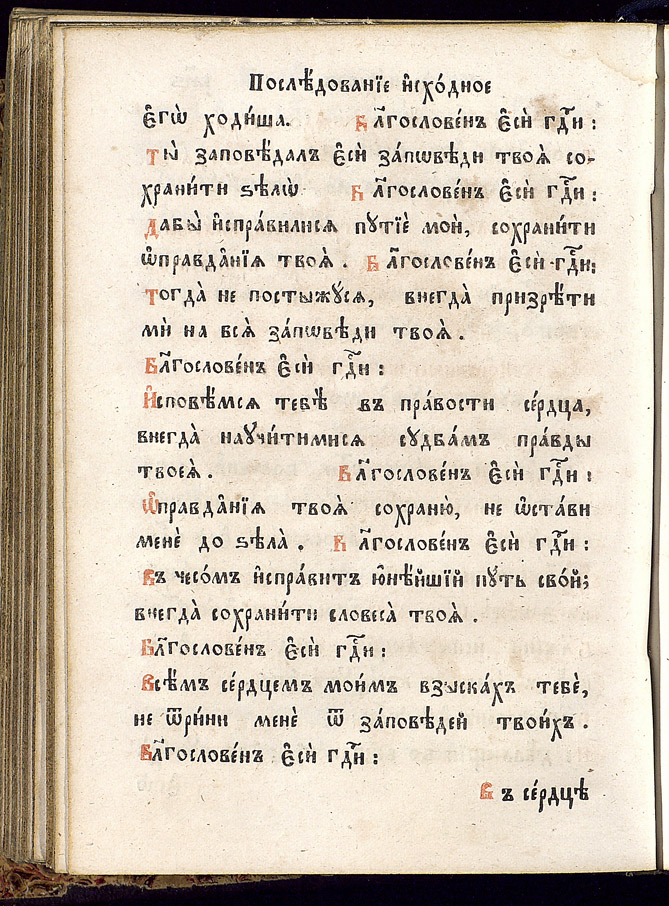 Послѣ́дованїе и҆схо́дное
є҆гѡ̀ ходи́ша. Бл҃гослове́нъ є҆сѝ гд҇и :
ты̀ заповѣ́далъ є҆сѝ за́пѡвѣди твоѧ̀ со-
храни́ти ѕѣлѡ̀ Бл҃гослове́нъ є҆сѝ гд҇и :
дабы̀ и҆спра́вилисѧ пꙋтїѐ моѝ, сохрани́ти
ѡ҆правда̑нїѧ твоѧ̀ . Бл҃гослове́нъ є҆сѝ гд҇и:
тогда̀ не постыжꙋ́сѧ, внегда̀ призрѣ́ти
мѝ на всѧ̀ за́пѡвѣди твоѧ̀ .
Бл҃гослове́нъ є҆сѝ гд҇и :
И҆сповѣ́мсѧ тебѣ̀ въ пра́вости се́рдца,
внегда̀ наꙋчи́тимисѧ сꙋдба́мъ пра́вды
твоеѧ̀ . Бл҃гослове́нъ є҆сѝ гд҇и :
Ѡ҆правда̑нїѧ твоѧ̀ сохраню̀, не ѡ҆ста́ви
менѐ до ѕѣла̀ . Бл҃гослове́нъ є҆сѝ гд҇и :
Въ чесо́мъ и҆спра́витъ ю҆нѣ́йшїй пꙋ́ть сво́й;
внегда̀ сохрани́ти словеса̀ твоѧ̀ .
Бл҃гослове́нъ є҆сѝ гд҇и :
Всѣ́мъ се́рдцемъ мои́мъ взыска́хъ тебѐ,
не ѿри́ни менѐ ѿ за́повѣдей твои́хъ .
Бл҃гослове́нъ є҆сѝ гд҇и :
Въ се́рдцѣ